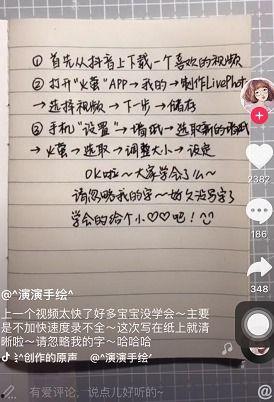 ① 首先从抖音上下载一个喜欢的视频
② 打开"火萤"APP→我的→制作LivePhoto
→选择视频→下一步→储存
③ 手机"设置"→墙纸→选取新的墙纸
→火萤→选取→调整大小→设定
OK啦~大家学会了么~
请忽略我的字~好久没写字了
学会的给个小♡♡吧!
2382
186
348
@^演演手绘^
上一个视频太快了好多宝宝没学会~主要
是不加快速度录不全~这次写在纸上就清
晰啦~请忽略我的字~哈哈哈
^创作的原声 @^演演手绘^
有爱评论，说点儿好听的~